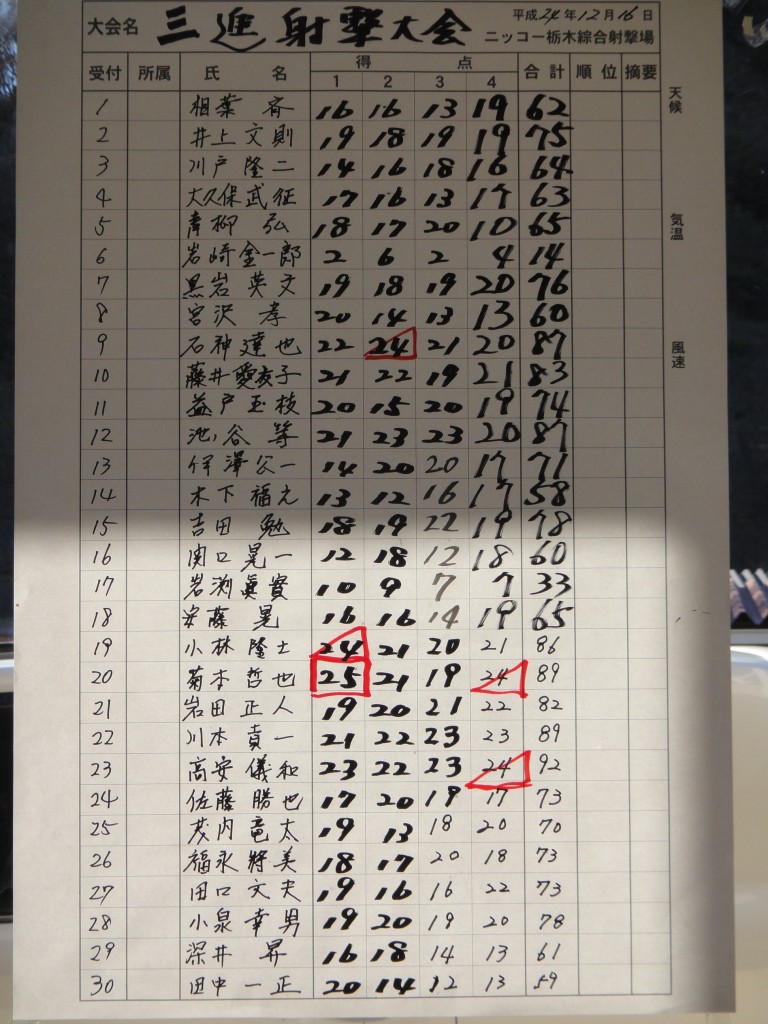 大会名 三進射撃大会 平成24年12月16日
ニッコー栃木綜合射撃場
受付 所属 氏名 得点 合計 順位 摘要
1 2 3 4
天候
気温
風速
1 相葉 斉 16 16 13 19 62
2 井上文則 19 18 19 19 75
3 川戸隆二 14 16 18 16 64
4 大久保武征 17 16 13 17 63
5 青柳 弘 18 17 20 10 65
6 岩崎金一郎 2 6 2 4 14
7 黒岩英文 19 18 19 20 76
8 宮沢 孝 20 14 13 13 60
9 石神達也 22 24 21 20 87
10 藤井愛友子 21 22 19 21 83
11 益戸玉枝 20 15 20 19 74
12 池谷 等 21 23 23 20 87
13 伊澤公一 14 20 20 17 71
14 木下福元 13 12 16 17 58
15 吉田 勉 18 19 22 19 78
16 関口晃一 12 18 12 18 60
17 岩渕眞實 10 9 7 7 33
18 安藤 晃 16 16 14 19 65
19 小林隆士 24 21 20 21 86
20 菊本哲也 25 21 19 24 89
21 岩田正人 19 20 21 22 82
22 川本貢一 21 22 23 23 89
23 高安儀和 23 22 23 24 92
24 佐藤勝也 17 20 19 17 73
25 茂内竜太 19 13 18 20 70
26 福永將美 18 17 20 18 73
27 田口文夫 19 16 16 22 73
28 小泉幸男 19 20 19 20 78
29 深井 昇 16 18 14 13 61
30 田中一正 20 14 12 13 59